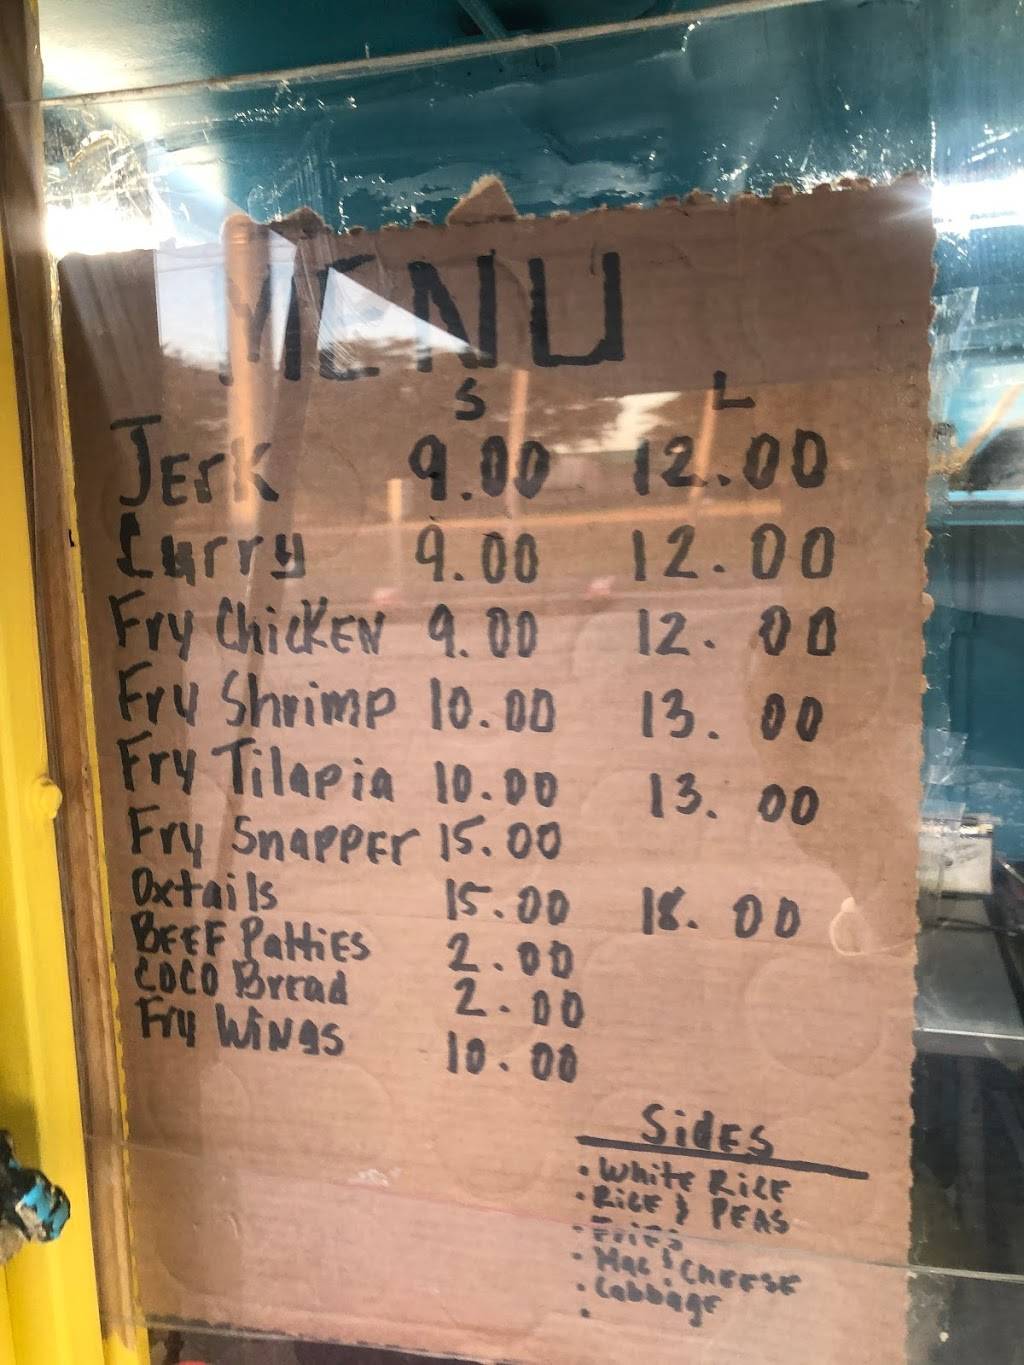 MENU
S L
JErK 9.00 12.00
Curry 9.00 12.00
Fry ChicKEN 9.00 12.00
Fry Shrimp 10.00 13.00
Fry Tilapia 10.00 13.00
Fry SnaPPEr 15.00
Oxtails 15.00 18.00
BEEF PattiES 2.00
COCO Bread 2.00
Fry WiNgS 10.00
SidES
• WhitE RicE
• RicE & PEAS
• FriES
• Mac & ChEESE
• Cabbage
•